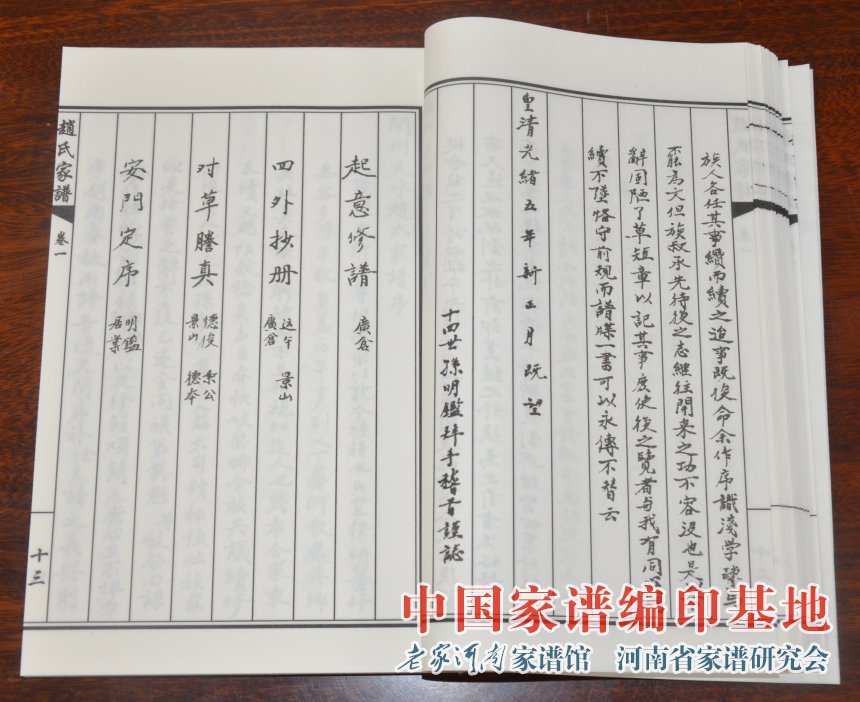 族人各任其事纘而續之迨事既俟命余作序識淺學疎
不能為文但族叔承先待後之志繼往開來之功不容沒也是
辭固陋了草短章以記其事庶使後之覽者与我有同
續不墜恪守前規而譜牒一書可以永傳不替云
皇清光緒五年新正月既望
十四世孫明鑑拜手稽首謹誌
起意修譜 廣倉
四外抄冊 廣倉 送午 景山
对草謄真 景山 德俊 德本 梨公
安門定序 居業 明鑑
趙氏家譜
卷一
十三
中国家谱编印基地
老家河南家谱馆 河南省家谱研究会